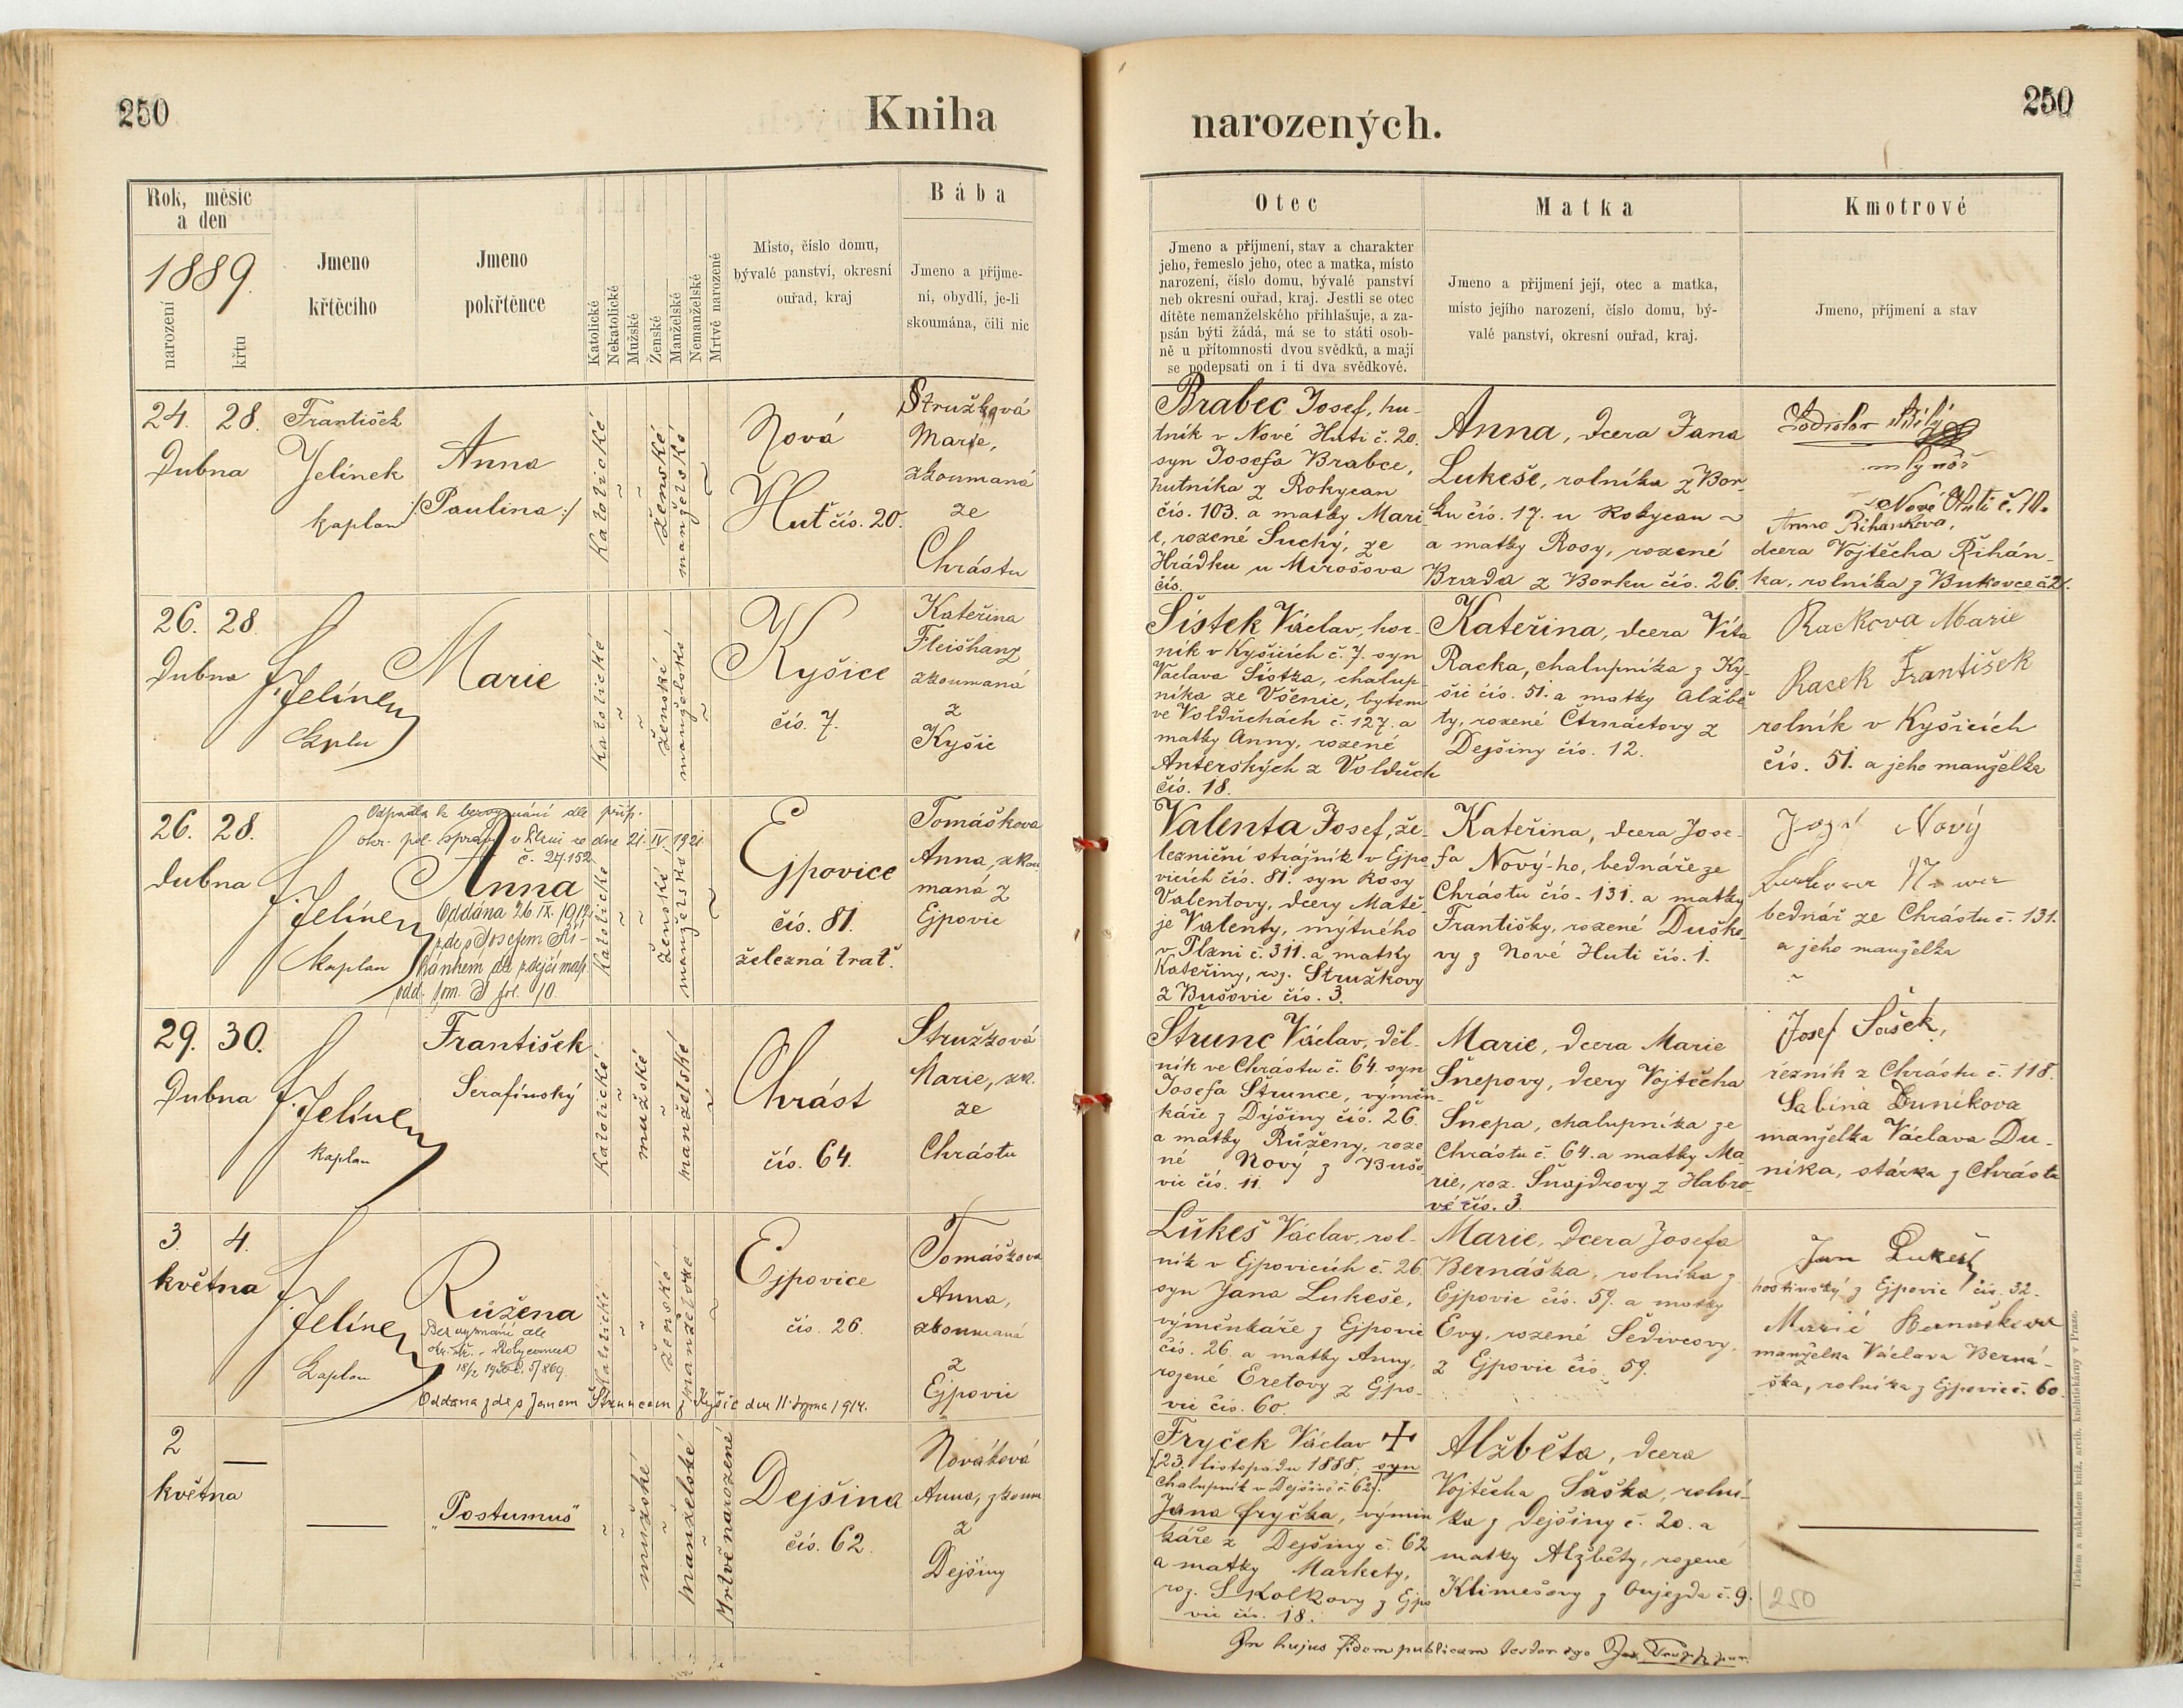 250
Kniha
Rok, měsíc
a den
1889.
narození
křtu
Jmeno
křtěcího
Jmeno
pokřtěnce
Katolické
Nekatolické
Mužské
Ženské
Manželské
Nemanželské
Mrtvě narozené
Místo, číslo domu,
bývalé panství, okresní
ouřad, kraj
Bába
Jmeno a příjme-
ní, obydlí, je-li
skoumána, čili nic
24. 28.
Dubna
František
Jelínek
kaplan
Anna
/: Paulina :/
Katolické
ženské
manželské
Nová
Huť čís. 20.
Stružková
Marie,
zkoumaná
ze
Chrástu
26. 28.
Dubna
F. Jelínek
Marie
Katolické
ženské
manželské
Kyšice
čís. 7.
Kateřina
Fleišhanz
zkoumaná
z
Kyšic
26. 28.
dubna
Odpadla k bezvyznání dle příp.
okr. pol. správy v Plzni ze dne 21. IV. 1921
č. 27.152
F. Jelínek
kaplan
Anna
Oddána 26. IX. 1912
zde s Josefem Ři-
hánkem dle zdejší mat.
odd. tom. fol. 10
Katolické
ženské
manželské
Ejpovice
čís. 81.
železná trať.
Tomáškova
Anna, zkou
maná z
Ejpovic
29. 30.
Dubna
F. Jelínek
kaplan
František
Serafínský
Katolické
mužské
manželské
Chrást
čís. 64.
Stružková
Marie, zk.
ze
Chrástu
3. 4.
května
F. Jelínek
kaplan
Růžena
Bez vyznání dle
Oddána zde s Janem Štruncem z Kyšic dne 11. srpna 1914.
Katolické
ženské
manželské
Ejpovice
čís. 26.
Tomáškova
Anna,
zkoumaná
z
Ejpovic
2
května
„Postumus“
mužské
manželské
Mrtvě narozené
Dejšina
čís. 62.
Nováková
Anna, zkoum
z
Dejšiny
250
narozených.
Otec
Jmeno a příjmení, stav a charakter
jeho, řemeslo jeho, otec a matka, místo
narození, číslo domu, bývalé panství
neb okresní ouřad, kraj. Jestli se otec
dítěte nemanželského přihlašuje, a za-
psán býti žádá, má se to státi osob-
ně u přítomnosti dvou svědků, a mají
se podepsati on i ti dva svědkové.
Matka
Jmeno a příjmení její, otec a matka,
místo jejího narození, číslo domu, bý-
valé panství, okresní ouřad, kraj.
Kmotrové
Jmeno, příjmení a stav
Brabec Josef, hu-
tník v Nové Huti č. 20.
syn Josefa Brabce,
hutníka z Rokycan
čís. 103. a matky Mari
e, rozené Suchý, ze
Hrádku u Mirošova
čís.
Anna, dcera Jana
Lukeše, rolníka z Bor-
ku čís. 17. u Rokycan
a matky Rosy, rozené
Brada z Borku čís. 26.
mlynář
z Nové Huti č. 10.
Anna Řihankova,
dcera Vojtěcha Řihán-
ka, rolníka z Bukovce č 21.
Šístek Václav, hor-
ník v Kyšicích č. 7. syn
Václava Šístka, chalup-
níka ze Všenic, bytem
ve Volduchách č. 127. a
matky Anny, rozené
Anterských z Volduch
čís. 18.
Kateřina, dcera Víta
Racka, chalupníka z Ky-
šic čís. 51. a matky Alžbě
ty, rozené Čtrnáctovy z
Dejšiny čís. 12.
Rackova Marie
Racek František
rolník v Kyšicích
čís. 51. a jeho manželka
Valenta Josef, že-
lezniční strážník v Ejpo-
vicích čís. 81. syn Rosy
Valentovy, dcery Matě-
je Valenty, mýtného
v Plzni č. 311. a matky
Kateřiny, roz. Stružkovy
z Bušovic čís. 3.
Kateřina, dcera Jose-
fa Nový-ho, bednáře ze
Chrástu čís. 131. a matky
Františky, rozené Duško-
vy z Nové Huti čís. 1.
Josef Nový
bednář ze Chrástu č. 131.
a jeho manželka
Štrunc Václav, děl-
ník ve Chrástu č. 64. syn
Josefa Štrunce, výměn-
káře z Dýšiny čís. 26.
a matky Růženy, roze
né Nový z Bušo
vic čís. 11.
Marie, dcera Marie
Šnepovy, dcery Vojtěcha
Šnepa, chalupníka ze
Chrástu č. 64. a matky Ma
rie, roz. Šnajdrovy z Habro-
vé čís. 3.
Josef Sašek,
řezník z Chrástu č. 118.
Sabina Dunikova
manželka Václava Du-
nika, stárka z Chrástu
Lukeš Václav, rol-
ník v Ejpovicích č. 26
syn Jana Lukeše,
výměnkáře z Ejpovic
čís. 26. a matky Anny,
rozené Eretovy z Ejpo-
vic čís. 60.
Marie, dcera Josefa
Bernáška, rolníka z
Ejpovic čís. 59. a matky
Evy, rozené Šedivcovy
z Ejpovic čís. 59.
Jan Lukeš
hostinský z Ejpovic čís. 32.
Marie Bernaškova
manželka Václava Berná-
ška, rolníka z Ejpovic č. 60
Fryček Václav +
(23. listopadu 1888. syn
chalupník v Dejšině č. 62).
Jana Fryčka, výmin
káře z Dejšiny č. 62
a matky Markety,
roz. Skolkovy z Ejpo
vic čís. 18.
Alžběta, dcera
Vojtěcha Saška, rolní-
ka z Dejšiny č. 20. a
matky Alžběty, rozené
Klimešovy z Oujezda č. 9.
250
In hujus fidem publicam testor ego
Tiskem a nákladem kníž. arcib. kněhtiskárny v Praze.